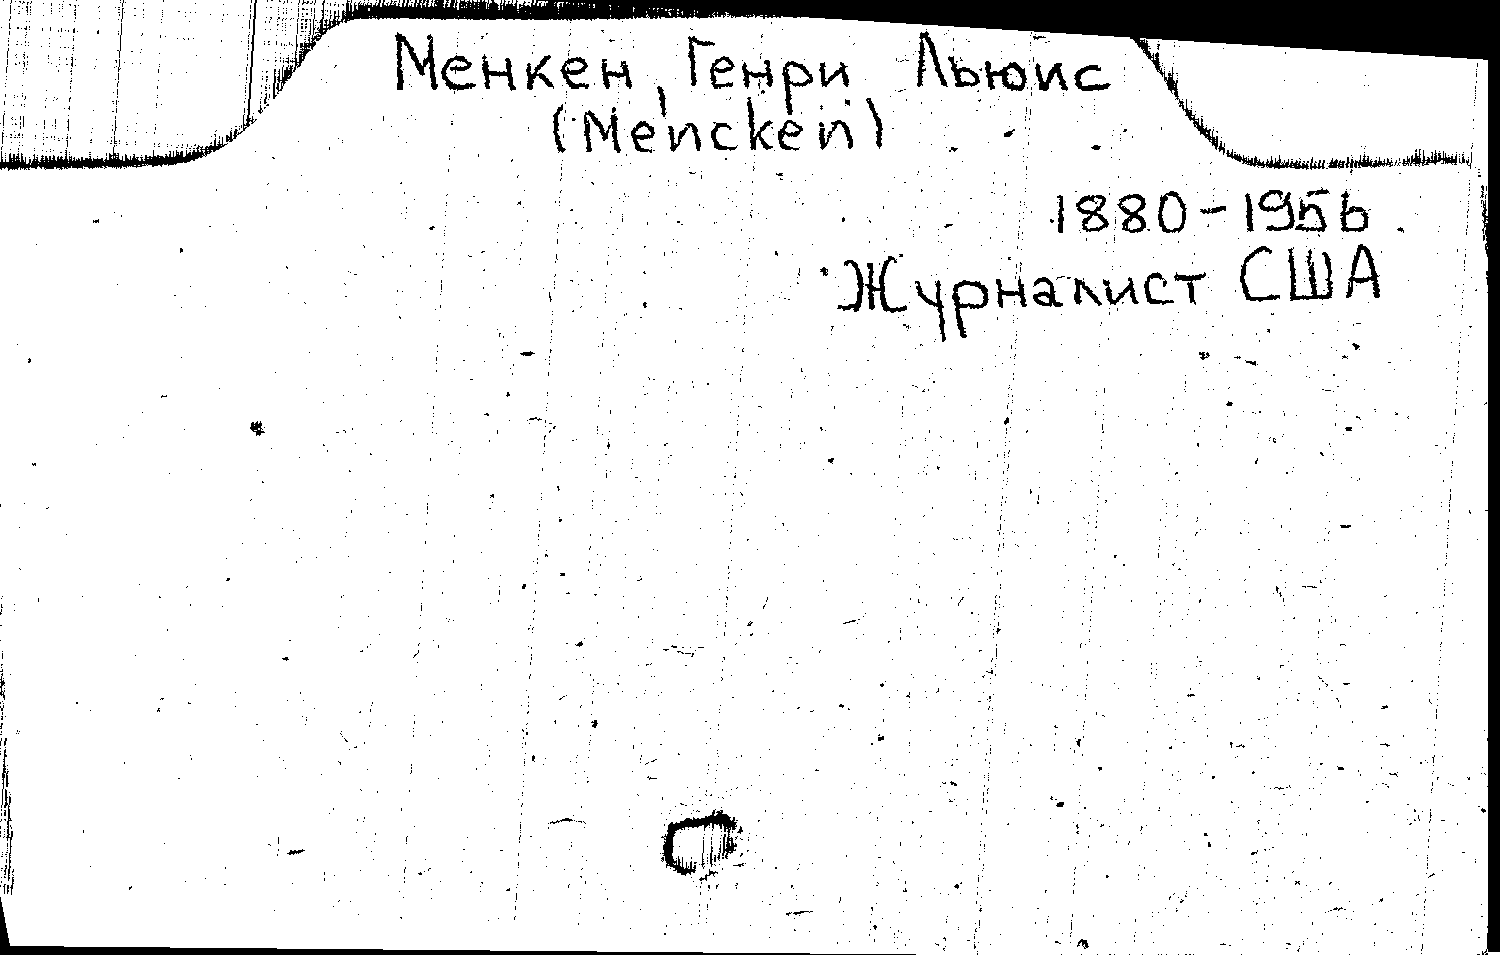 Менкен, Генри Льюис
(Mencken)
1880-1956.
Журналист США